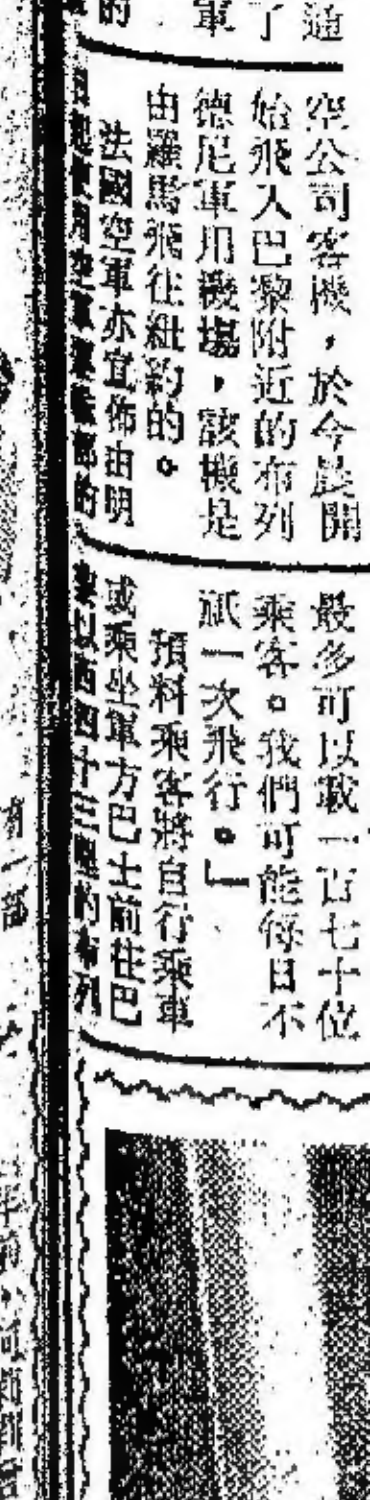 通
了
軍
的
空公司客機，於今晨開
始飛入巴黎附近的布列
德尼軍用機場，該機是
由羅馬飛往紐約的。
法國空軍亦宣佈由明
日起使用空軍運輸部的
最多可以載一百七十位
乘客。我們可能每日不
祇一次飛行。」
預料乘客將自行乘車
或乘坐軍方巴士前往巴
黎以西四十三哩的布列
有一部